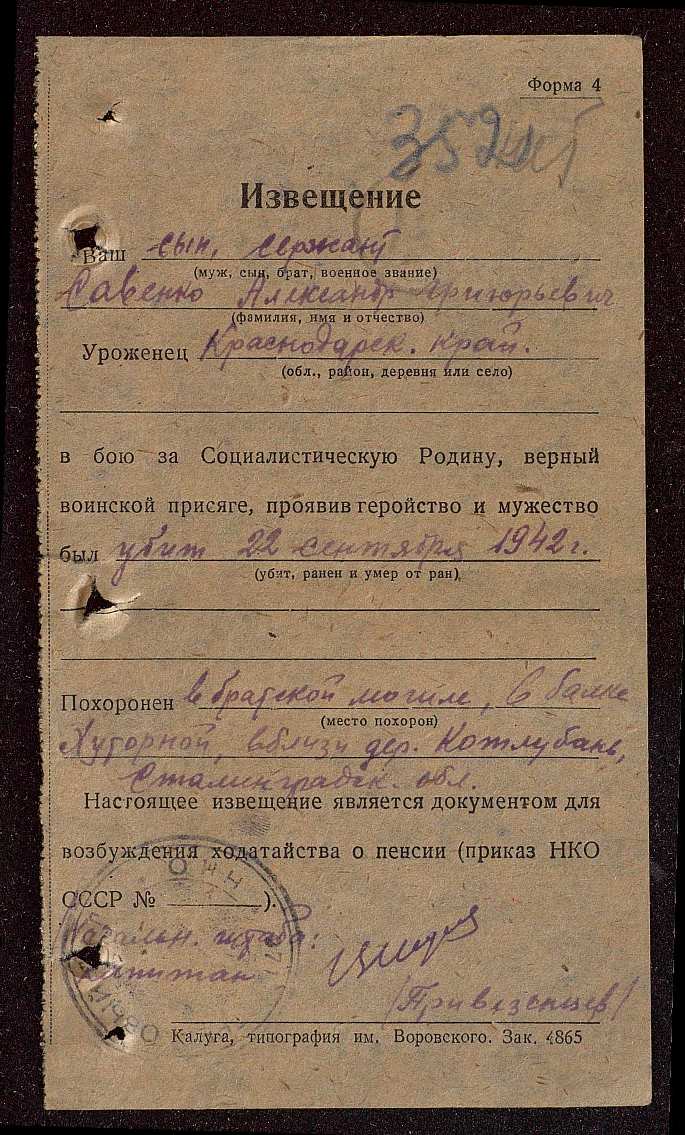 Форма 4
352
Извещение
Ваш сын, сержант
(муж, сын, брат, военное звание)
Савенко Александр Григорьевич
(фамилия, имя и отчество)
Уроженец Краснодарск. край.
(обл., район, деревня или село)
в бою за Социалистическую Родину, верный
воинской присяге, проявив геройство и мужество
был убит 22 сентября 1942 г.
(убит, ранен и умер от ран)
Похоронен в братской могиле, в балке
(место похорон)
Хуторной, вблизи дер. Котлубань,
Сталинградск. обл.
Настоящее извещение является документом для
возбуждения ходатайства о пенсии (приказ НКО
СССР № ).
Начальн. штаба:
капитан
(Привезенцев)
Калуга, типография им. Воровского. Зак. 4865